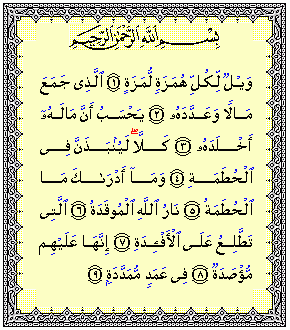 بِسْمِ ٱللَّهِ ٱلرَّحْمَٰنِ ٱلرَّحِيمِ
وَيْلٌ لِّكُلِّ هُمَزَةٍ لُّمَزَةٍ ١ ٱلَّذِى جَمَعَ
مَالًا وَعَدَّدَهُۥ ٢ يَحْسَبُ أَنَّ مَالَهُۥٓ
أَخْلَدَهُۥ ٣ كَلَّا ۖ لَيُنۢبَذَنَّ فِى
ٱلْحُطَمَةِ ٤ وَمَآ أَدْرَىٰكَ مَا
ٱلْحُطَمَةُ ٥ نَارُ ٱللَّهِ ٱلْمُوقَدَةُ ٦ ٱلَّتِى
تَطَّلِعُ عَلَى ٱلْأَفْـِٔدَةِ ٧ إِنَّهَا عَلَيْهِم
مُّؤْصَدَةٌ ٨ فِى عَمَدٍ مُّمَدَّدَةٍۭ ٩